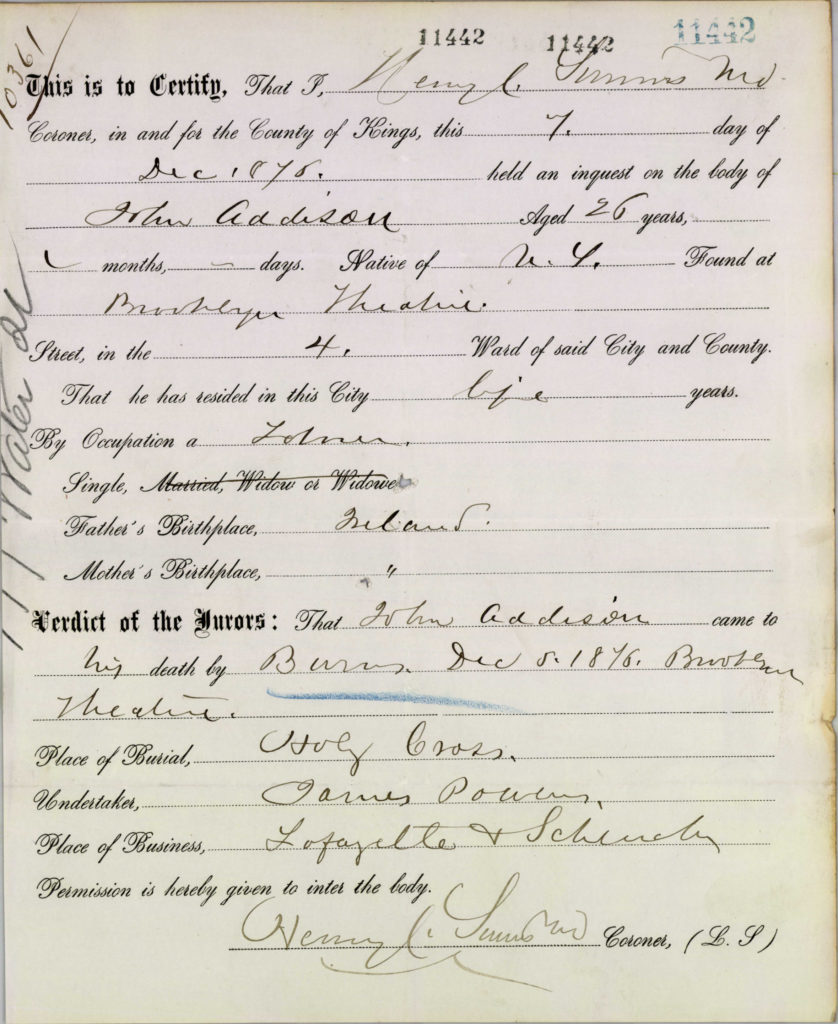 11442 11442 11442
10361
This is to Certify, That I, Henry C. Simms MD
Coroner, in and for the County of Kings, this 7. day of
Dec. 1876. held an inquest on the body of
John Addison Aged 26 years,
months, days. Native of U. S. Found at
Brooklyn Theatre.
Street, in the 4. Ward of said City and County.
That he has resided in this City life years.
By Occupation a
Single, Married, Widow or Widower
Father's Birthplace, Ireland.
Mother's Birthplace, "
Verdict of the Jurors: That John Addison came to
his death by Burns. Dec 5. 1876. Brooklyn
Theatre.
Place of Burial, Holy Cross.
Undertaker, James Powers.
Place of Business, Lafayette & Schenck
Permission is hereby given to inter the body.
Henry C. Simms MD Coroner, (L. S)
Water St